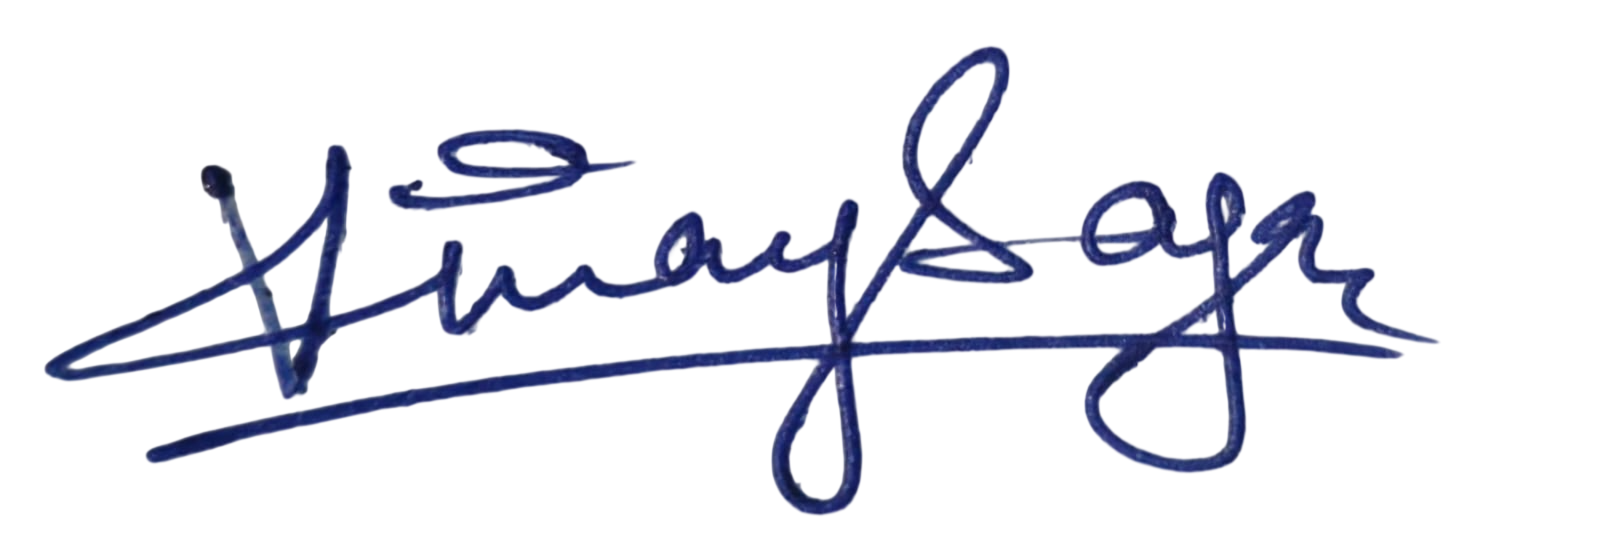 Vinay Sagar